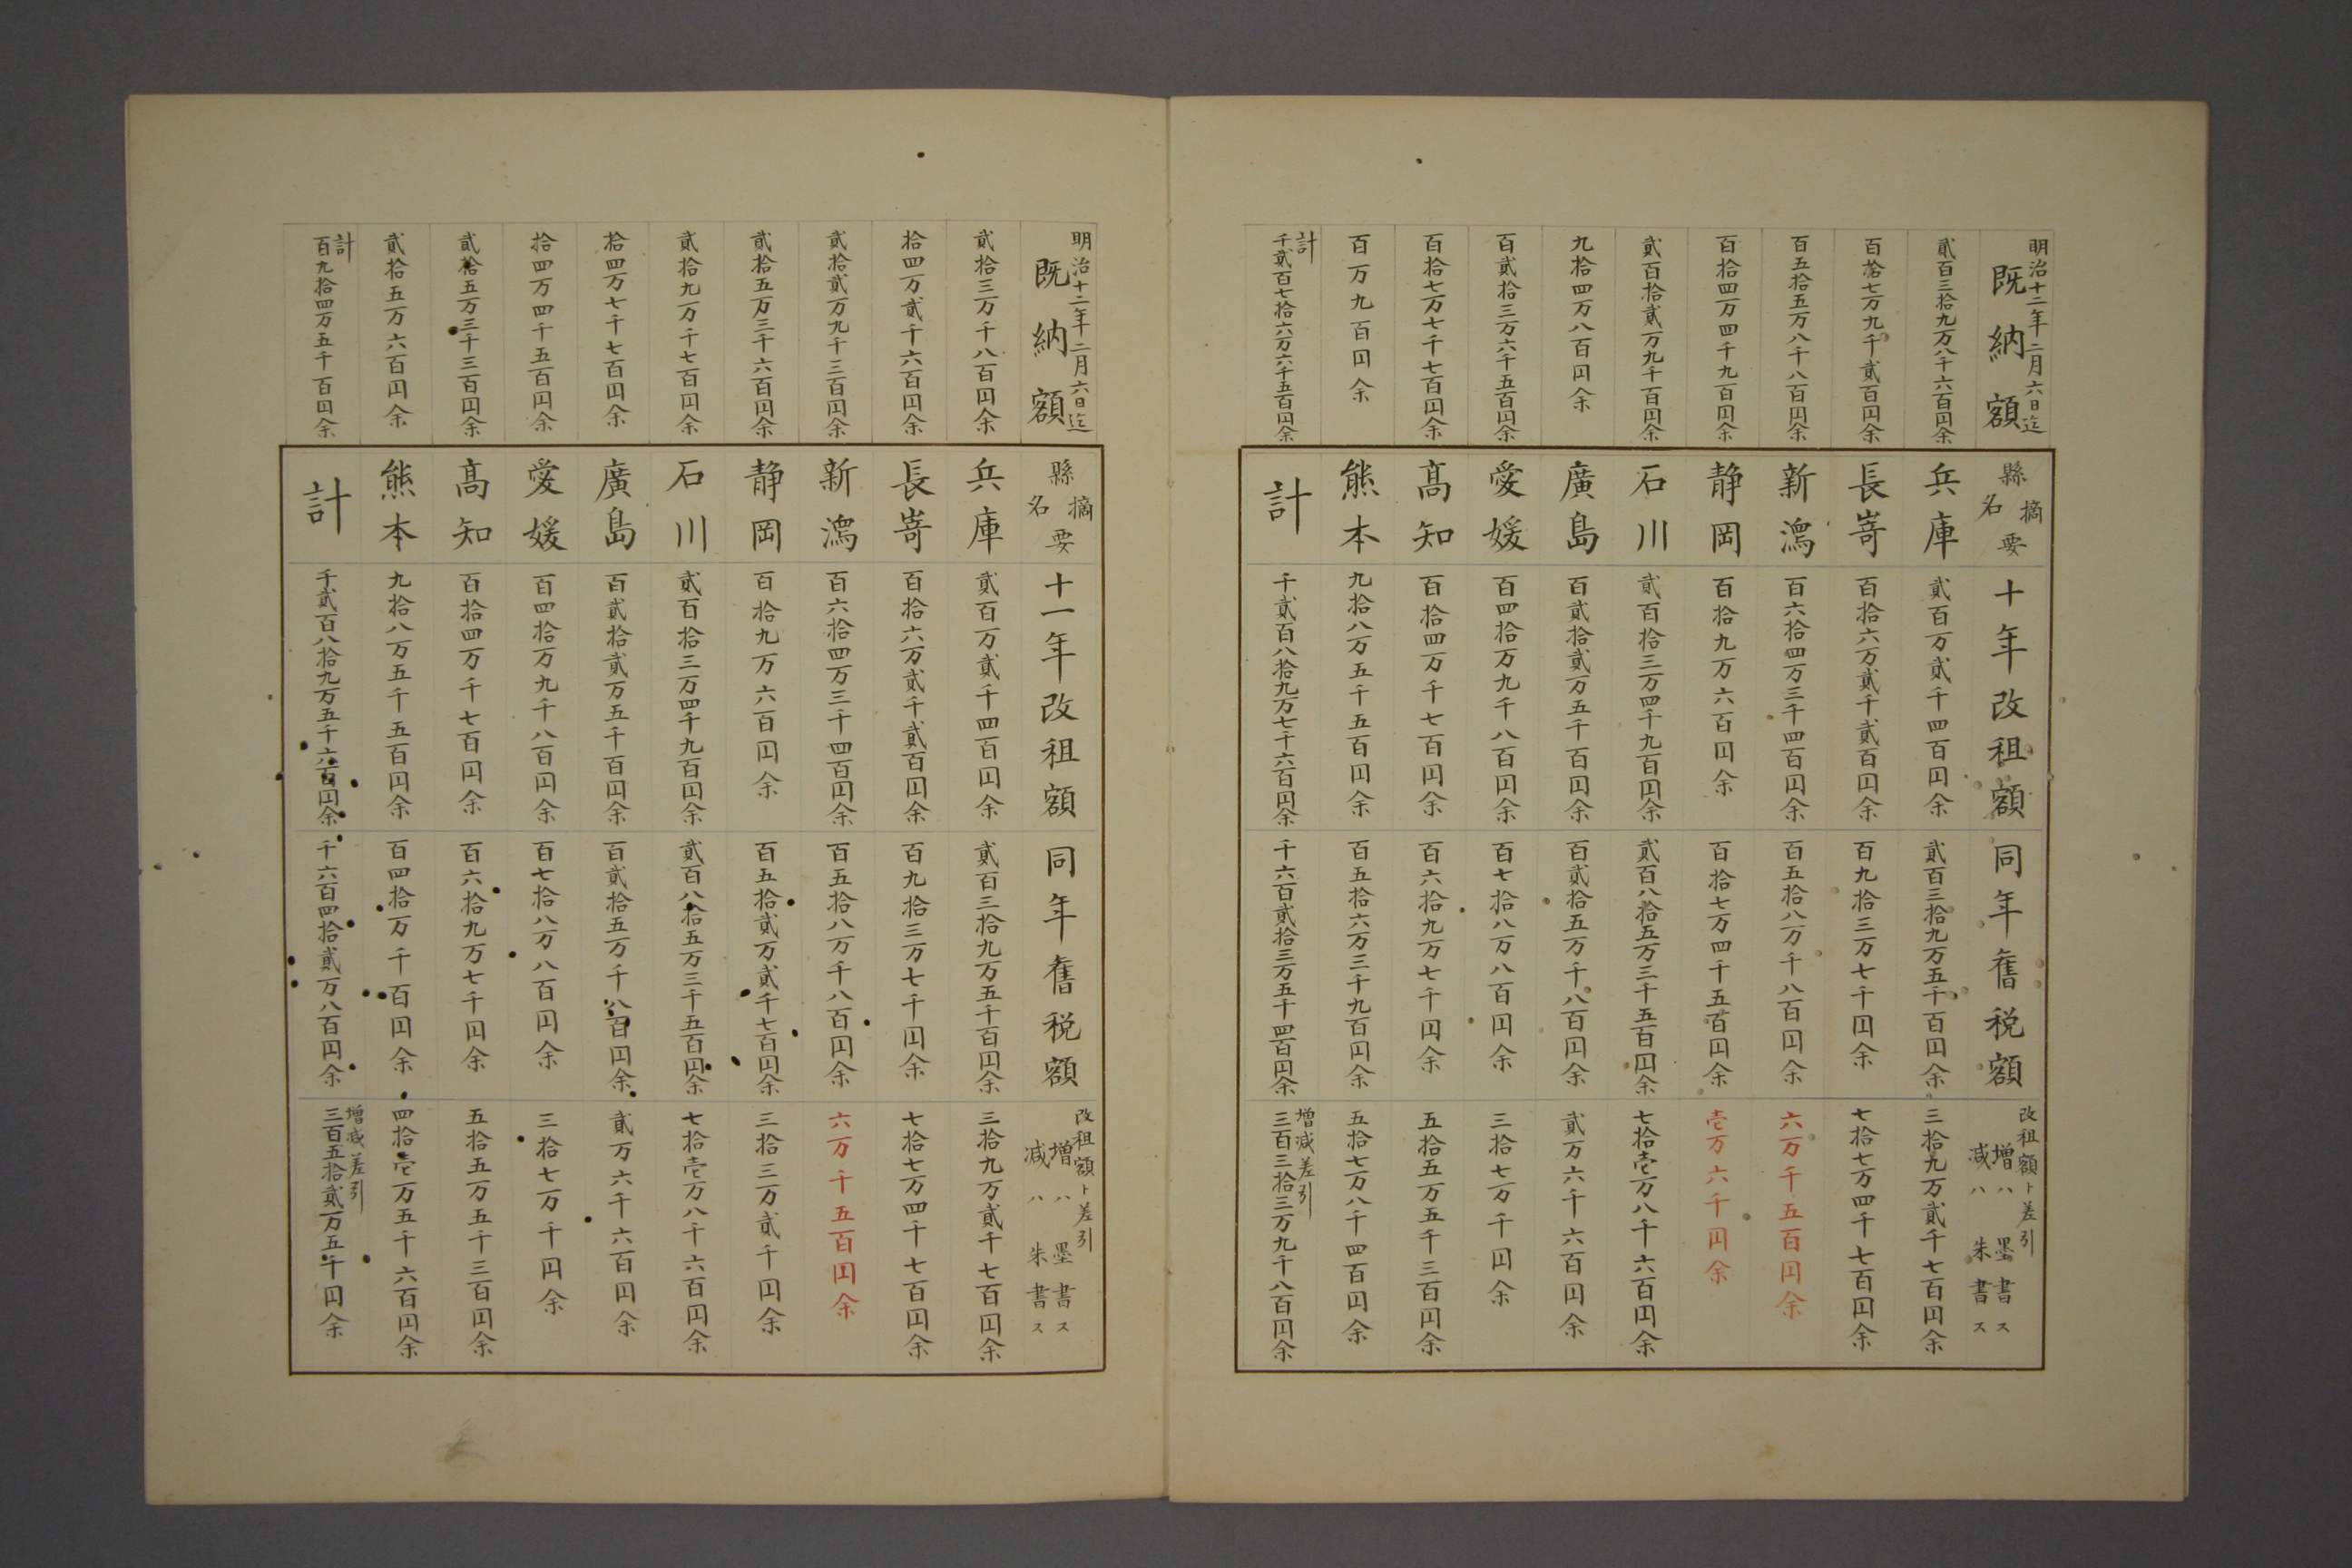 明治十二年二月六日迄
既納額
縣名
摘要
十年改租額
同年舊税額
改租額ト差引
増ハ墨書ス
減ハ朱書ス
貳百三拾九万八千六百円余
兵庫
貳百万貳千四百円余
貳百三拾九万五千百円余
三拾九万貳千七百円余
百拾七万九千貳百円余
長嵜
百拾六万貳千貳百円余
百九拾三万七千円余
七拾七万四千七百円余
百五拾五万八千八百円余
新潟
百六拾四万三千四百円余
百五拾八万千八百円余
六万千五百円余
百拾四万四千九百円余
静岡
百拾九万六百円余
百拾七万四千五百円余
壱万六千円余
貳百拾貳万九千百円余
石川
貳百拾三万四千九百円余
貳百八拾五万三千五百円余
七拾壱万八千六百円余
九拾四万八百円余
廣島
百貳拾貳万五千百円余
百貳拾五万千八百円余
貳万六千六百円余
百貳拾三万六千五百円余
愛媛
百四拾万九千八百円余
百七拾八万八百円余
三拾七万千円余
百拾七万七千七百円余
高知
百拾四万千七百円余
百六拾九万七千円余
五拾五万五千三百円余
百万九百円余
熊本
九拾八万五千五百円余
百五拾六万三千九百円余
五拾七万八千四百円余
計
千貳百七拾六万六千五百円余
計
千貳百八拾九万七千六百円余
千六百貳拾三万五千四百円余
増減差引
三百三拾三万九千八百円余
明治十二年二月六日迄
既納額
縣名
摘要
十一年改租額
同年舊税額
改租額ト差引
増ハ墨書ス
減ハ朱書ス
貳拾三万千八百円余
兵庫
貳百万貳千四百円余
貳百三拾九万五千百円余
三拾九万貳千七百円余
拾四万貳千六百円余
長嵜
百拾六万貳千貳百円余
百九拾三万七千円余
七拾七万四千七百円余
貳拾貳万九千三百円余
新潟
百六拾四万三千四百円余
百五拾八万千八百円余
六万千五百円余
貳拾五万三千六百円余
静岡
百拾九万六百円余
百五拾貳万貳千七百円余
三拾三万貳千円余
貳拾九万千七百円余
石川
貳百拾三万四千九百円余
貳百八拾五万三千五百円余
七拾壱万八千六百円余
拾四万七千七百円余
廣島
百貳拾貳万五千百円余
百貳拾五万千八百円余
貳万六千六百円余
拾四万四千五百円余
愛媛
百四拾万九千八百円余
百七拾八万八百円余
三拾七万千円余
貳拾五万三千三百円余
高知
百拾四万千七百円余
百六拾九万七千円余
五拾五万五千三百円余
貳拾五万六百円余
熊本
九拾八万五千五百円余
百四拾万千百円余
四拾壱万五千六百円余
計
百九拾四万五千百円余
計
千貳百八拾九万五千六百円余
千六百四拾貳万八百円余
増減差引
三百五拾貳万五千円余